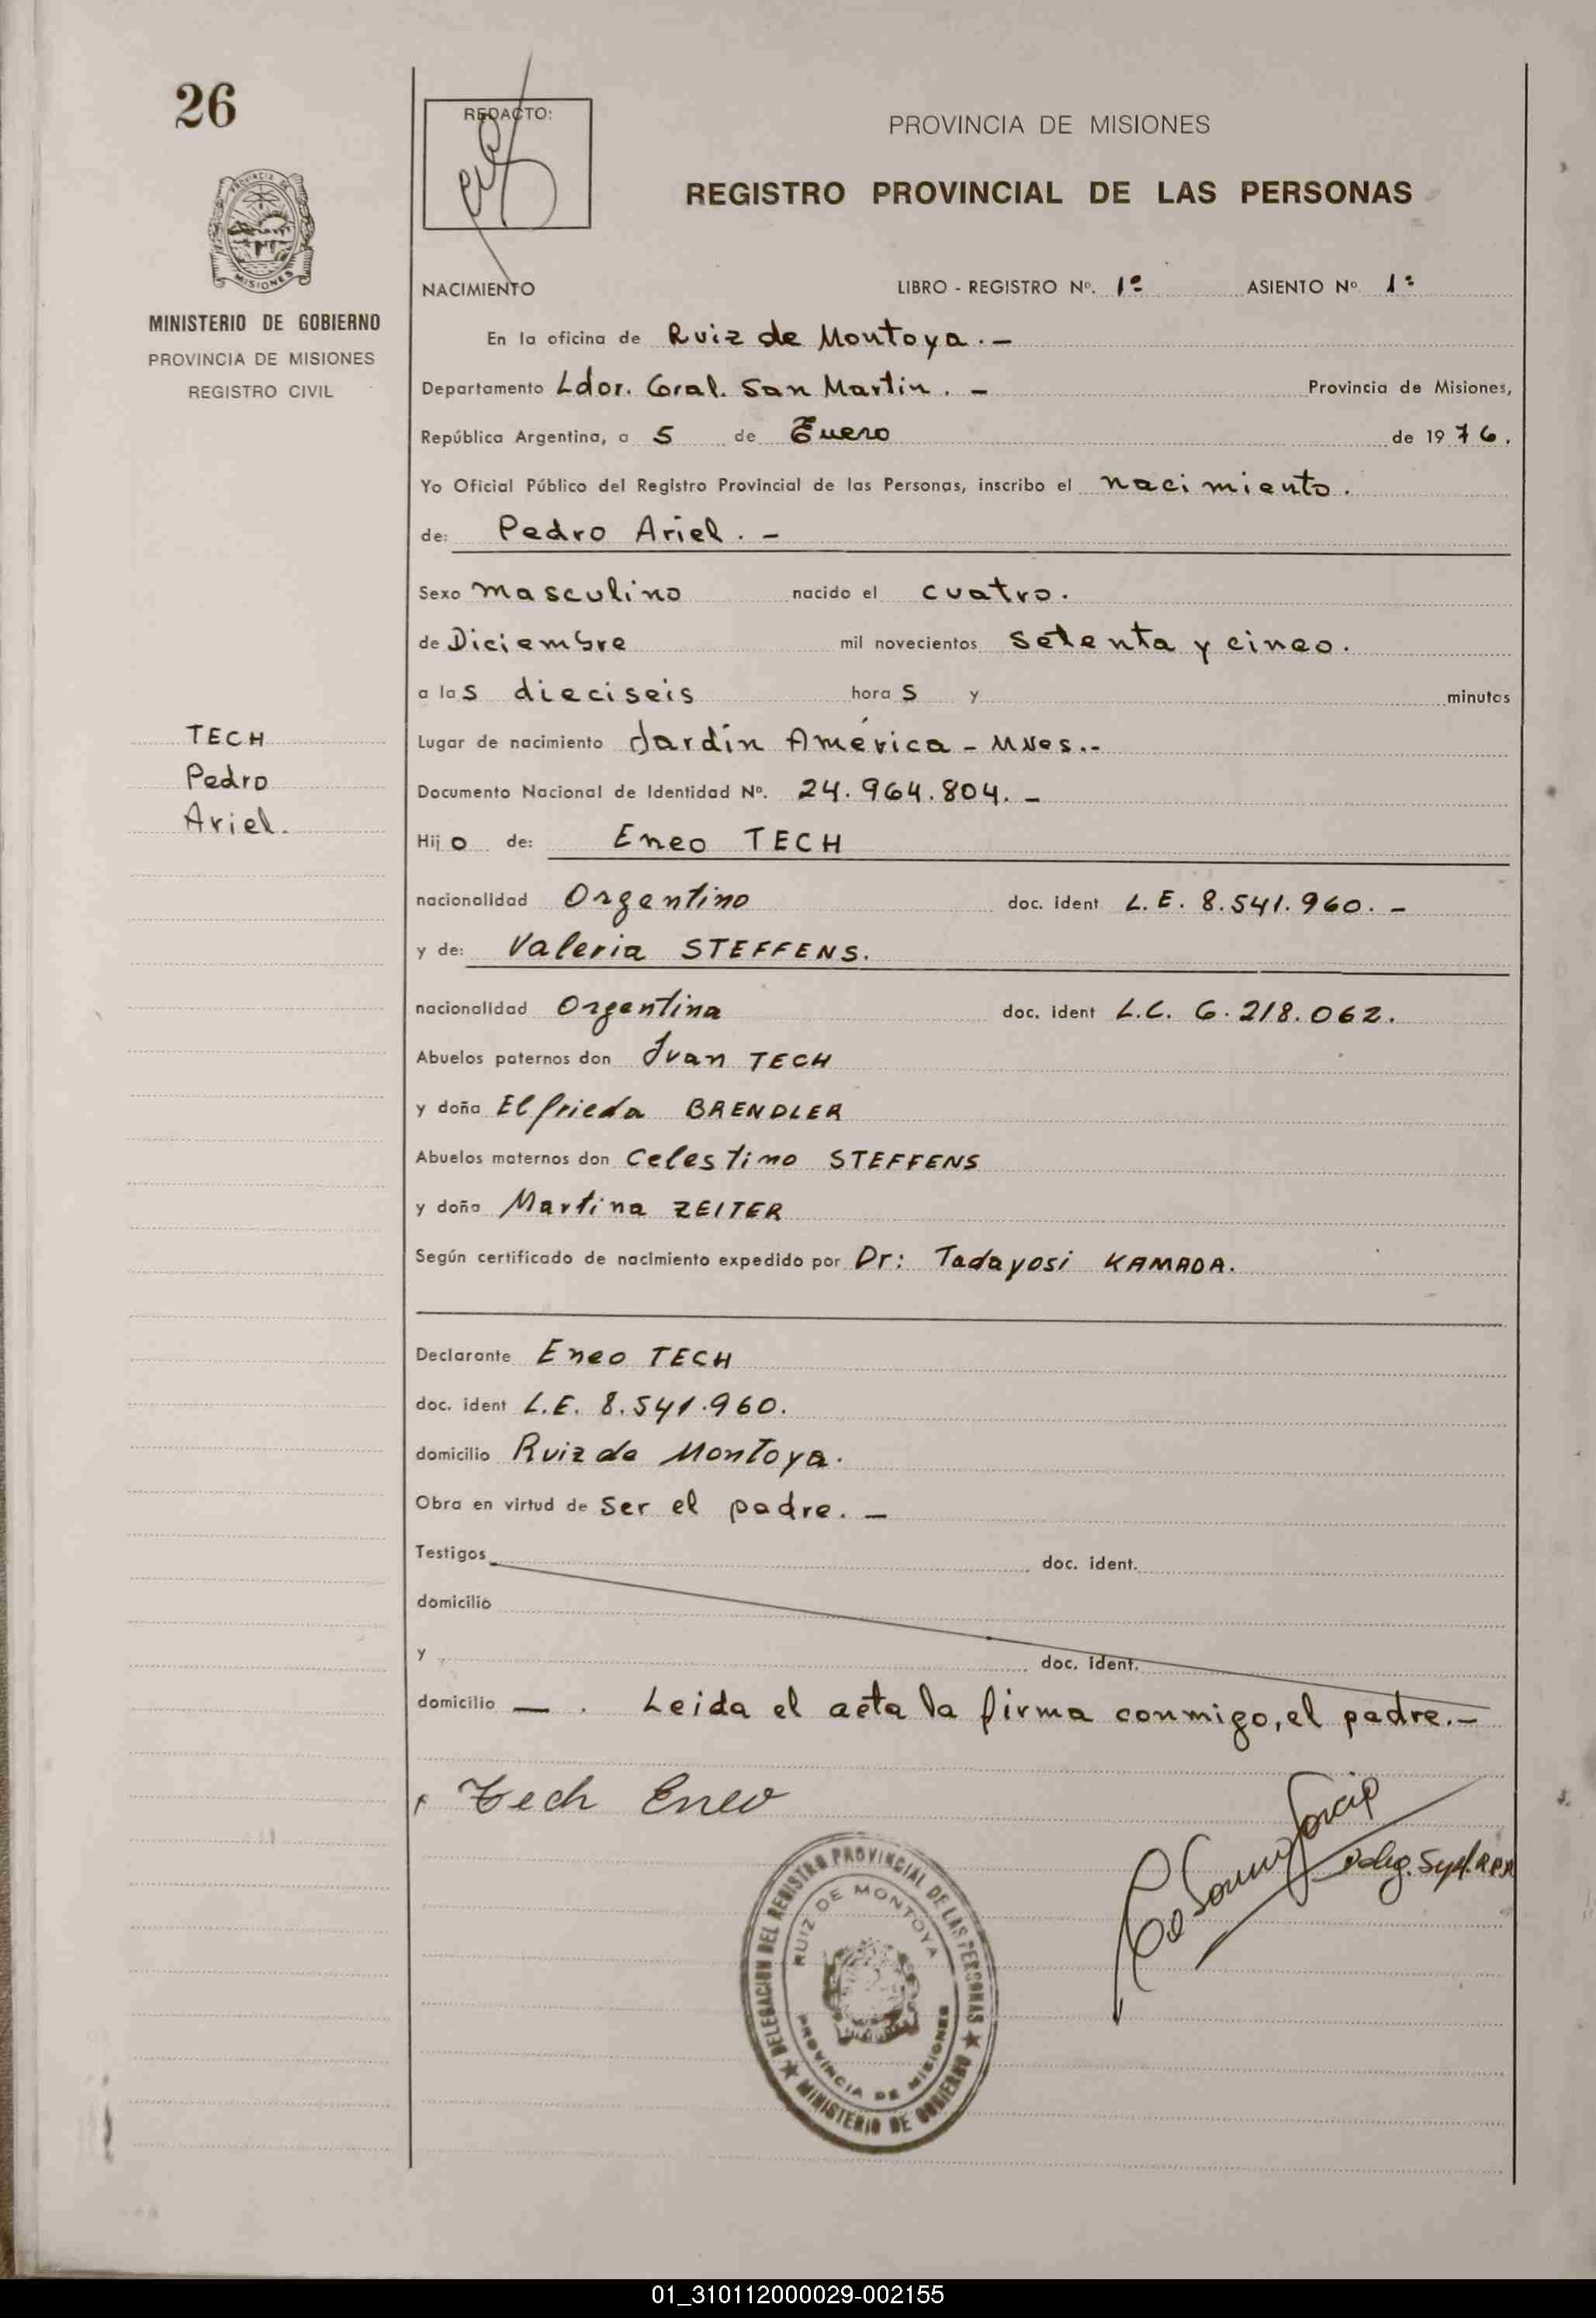 26
REDACTO:
PROVINCIA DE MISIONES
REGISTRO PROVINCIAL DE LAS PERSONAS
PROVINCIA DE
MISIONES
MINISTERIO DE GOBIERNO
PROVINCIA DE MISIONES
REGISTRO CIVIL
NACIMIENTO LIBRO - REGISTRO Nº. 1º ASIENTO Nº 1º
En la oficina de Ruiz de Montoya. —
Departamento Ldor. Gral. San Martin. — Provincia de Misiones,
República Argentina, a 5 de Enero de 1976.
Yo Oficial Público del Registro Provincial de las Personas, inscribo el nacimiento.
de: Pedro Ariel. —
Sexo masculino nacido el cuatro.
de Diciembre mil novecientos setenta y cinco.
a las dieciseis horas y minutos
Lugar de nacimiento Jardín América - Mnes. -
Documento Nacional de Identidad Nº. 24.964.804. —
TECH
Pedro
Ariel.
Hijo de: Eneo TECH
nacionalidad Argentino doc. ident L.E. 8.541.960. —
y de: Valeria STEFFENS.
nacionalidad Argentina doc. ident L.C. 6.218.062.
Abuelos paternos don Juan TECH
y doña Elfrieda BRENDLER
Abuelos maternos don Celestino STEFFENS
y doña Martina ZEITER
Según certificado de nacimiento expedido por Dr: Tadayosi KAMADA.
Declarante Eneo TECH
doc. ident L.E. 8.541.960.
domicilio Ruiz de Montoya.
Obra en virtud de ser el padre. —
Testigos doc. ident.
domicilio
y doc. ident.
domicilio — . Leida el acta la firma conmigo, el padre. —
Tech Eneo
DELEGACION DEL REGISTRO PROVINCIAL DE LAS PERSONAS
RUIZ DE MONTOYA
PROVINCIA DE MISIONES
MINISTERIO DE GOBIERNO
01_310112000029-002155